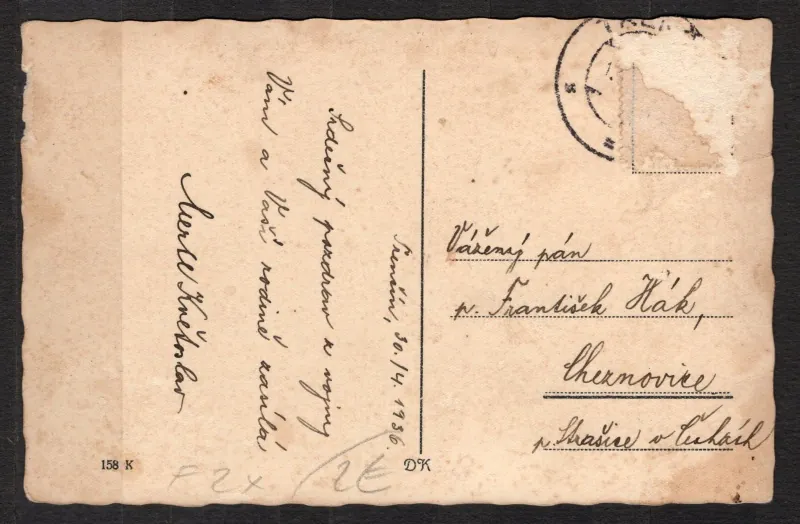 Trenčín, 30./4. 1936.
Srdečný pozdrav z vojny
Vám a Vaší rodině zasílá
Květoslav
Vážený pán
p. František Hák,
Cheznovice
p. Strašice v Čechách
158 K
DK
F 2x
2E